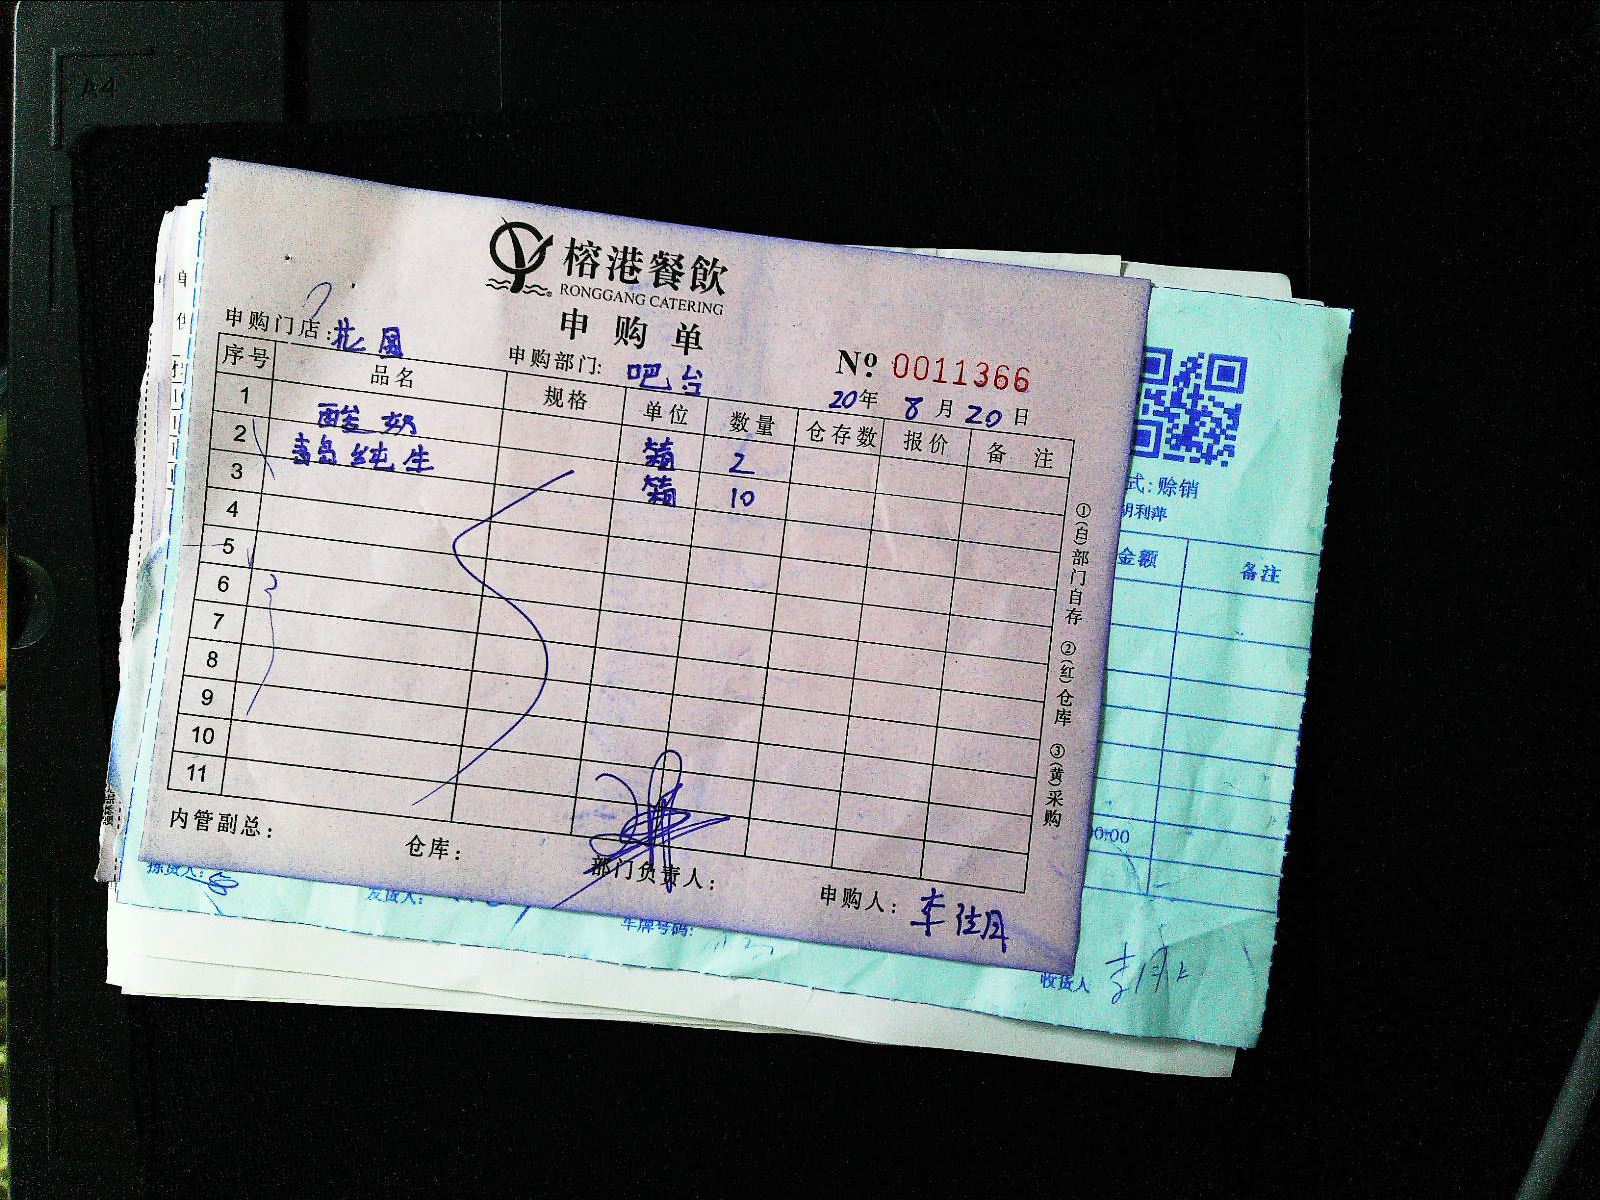 A4
榕港餐飲
RONGGANG CATERING
申购单
申购门店:
申购部门: 吧台
№ 0011366
20年 8月 20日
序号 品名 规格 单位 数量 仓存数 报价 备注
1 酸奶 箱 2
2 青岛纯生 箱 10
3
4
5
6
7
8
9
10
11
①(白)部门自存 ②(红)仓库 ③(黄)采购
内管副总: 仓库: 部门负责人: 申购人:
式: 赊销
胡利萍
金额 备注
00.00
拣货人: 发货人: 车牌号码: 收货人